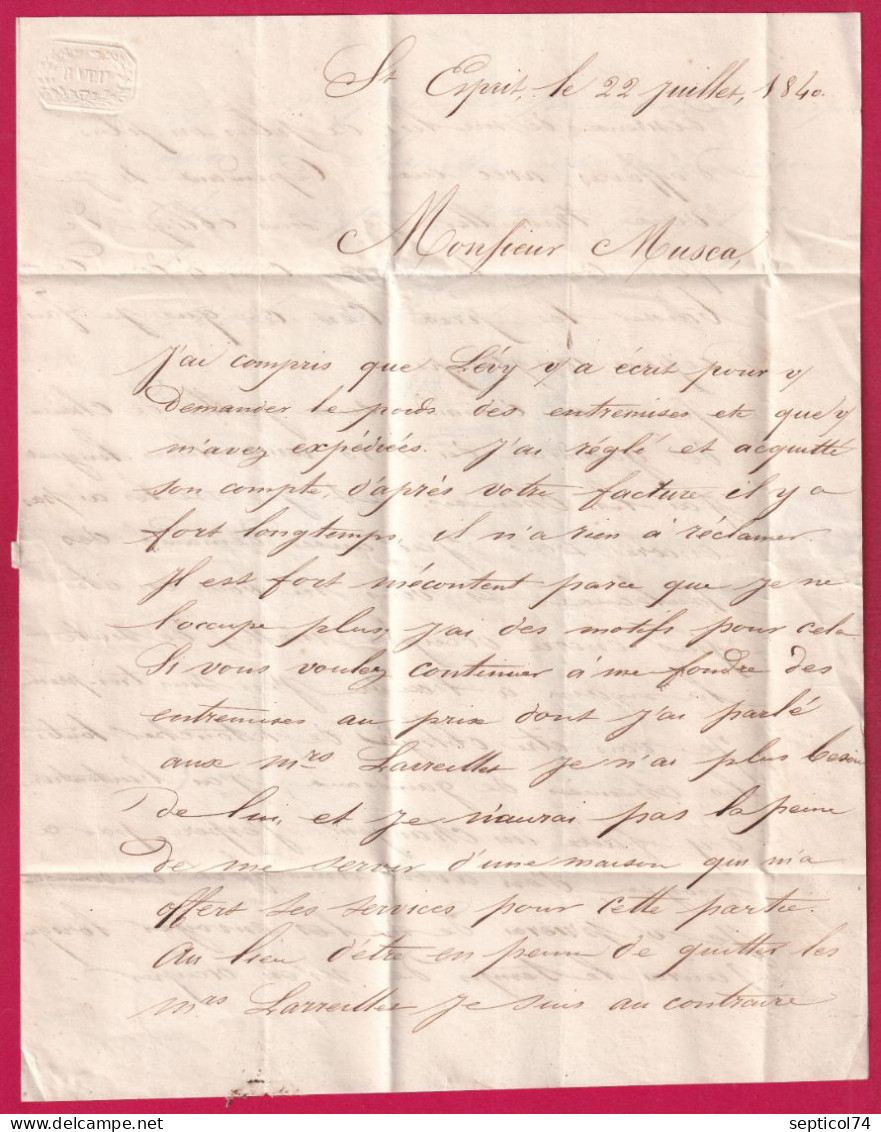 BATH
St Esprit, le 22 juillet, 1840.
Monsieur Musca,
J'ai compris que Lévy v/ a écrit pour v/
demander le poids des entremises etc que v/
m'avez expédiées. J'ai réglé et acquitté
son compte, d'après votre facture il y a
fort longtemps, il n'a rien à réclamer.
Il est fort mécontent parce que je ne
l'occupe plus, j'ai des motifs pour cela
Si vous voulez continuer à me fondre des
entremises au prix dont j'ai parlé
aux Mrs Larreillet je n'ai plus besoin
de lui, et je n'aurai pas la peine
de me servir d'une maison qui m'a
offert ses services pour cette partie.
Au lieu d'être en peine de quitter les
Mrs Larreillet je suis au contraire
delcampe.net
septicol74